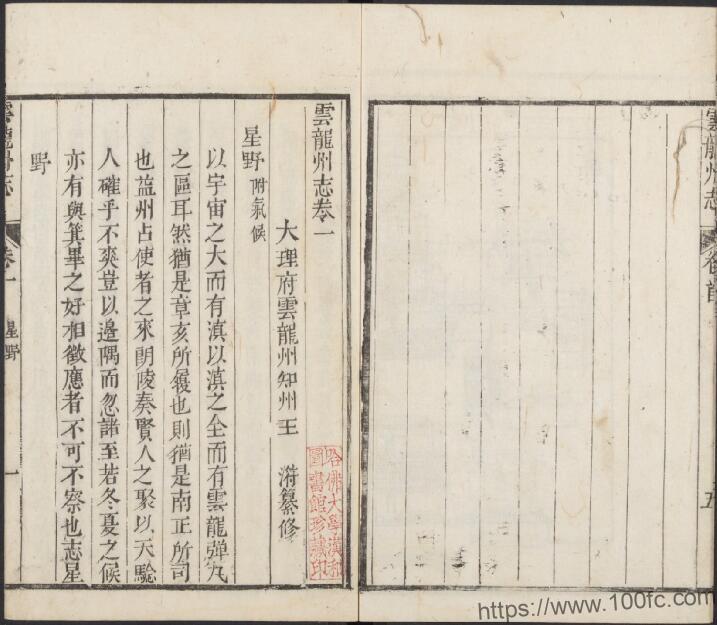 雲龍州志
卷首
五
雲龍州志卷一
大理府雲龍州知州王 㵯纂修
哈佛大學漢和圖書館珍藏印
星野附氣候
以宇宙之大而有滇以滇之全而有雲龍彈丸
之區耳然猶是章亥所履也則猶是南正所司
也益州占使者之來朗陵奏賢人之聚以天驗
人確乎不爽豈以邉隅而忽諸至若冬夏之候
亦有與箕畢之好相徵應者不可不察也志星
野
雲龍州志
卷一
星野
一
https://www.100fc.com